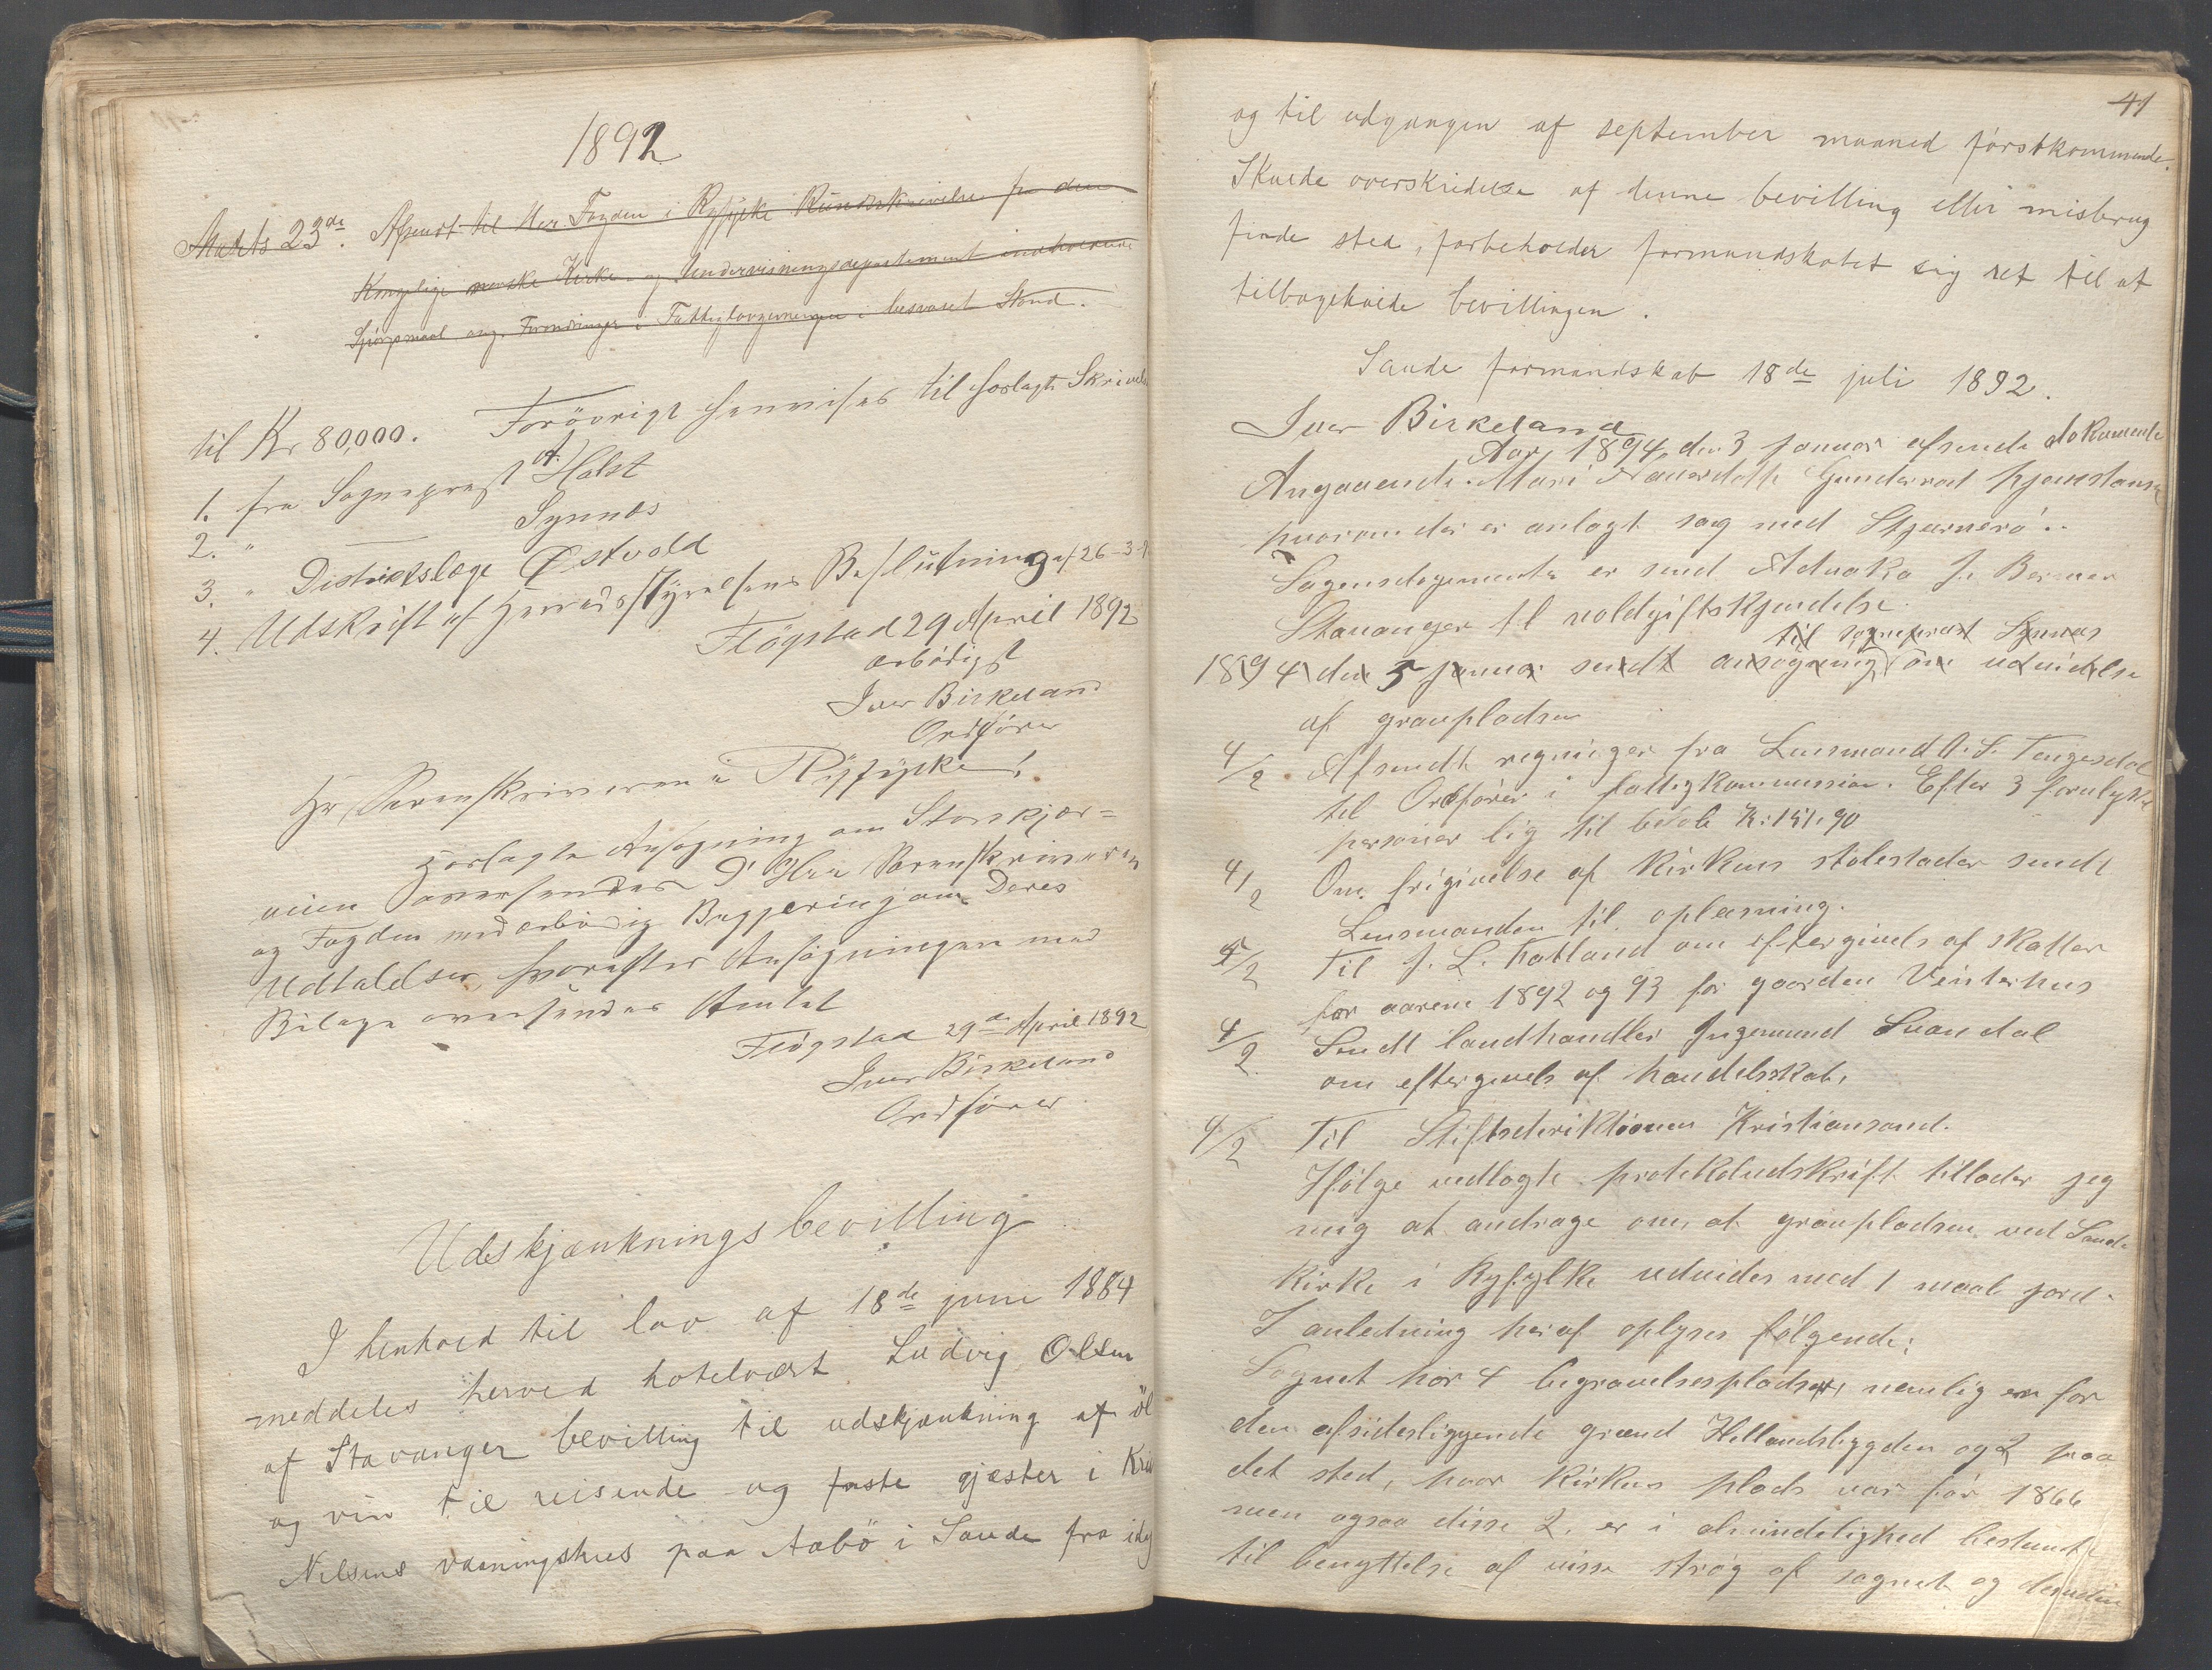 1892
Marts 23de. Afsendt til Herr Fogden i Ryfylke Rundskrivelse fra den
Kongelige norske Kirke- og Undervisningsdepartement indholdende
Spörgsmaal ang. Forandringer i Fattiglovgivningen i besvaret Stand.
til Kr 80,000. Forövrigt henvises til forlagte Skrivels
1. fra Sogneprest A. Halst
2. " Synnes
3. " Distriktslæge Østvold
4. Udskrift af Herredsstyrelsens Beslutning af 26-3-9
Flögstad 29 April 1892
ærbödigst
Iver Birkeland
Ordförer
Hr. Sorenskriveren i Ryfylke!
Forlagte Ansögning om Storskjær=
veien oversendes D'Hrr Sorenskriveren
og Fogden med ærbödig Begjering om Deres
Udtalelser, hvorefter Ansögningen med
Bilage oversendes Amtet
Flögstad 29de April 1892
Iver Birkeland
Ordförer
Udskjænkningsbevilling
I henhold til lov af 18de juni 1884
meddeles herved hotelvært Ludvig Olsen
af Stavanger bevilling til udskjænkning af öl
og vin til reisende og faste gjæster i Kri
Nilsens vaaningshus paa Aabö i Saude fra idag
41
og til udgangen af september maaned förstkommende.
Skulde overskridelse af denne bevilling eller misbrug
finde sted, forbeholder formandskabet sig ret til at
tilbagekalde bevillingen.
Saude formandskab 18de juli 1892.
Iver Birkeland
Aar 1894, den 3 januar afsendt dokumente
Angaaende Mari Gunderrod hjemstavn
hvorom der er anlagt sag med Stjernerö.
Sagensdogumenter er send Advoka f. Berner
Stavanger til voldgiftskjendelse.
til sogneprest Synnes
1894 den 5 januar sendt ansögning om udvidelse
af gravpladsen
4/2 Afsendt regninger fra Lensmand O. S. Tengesdal
til Ordförer i fattigkommission. Efter 3 forulykke
personer lig til belöb K: 151,90
4/2 Om frigivelse af Kirkens stolestader sendt
Lensmanden til oplæsning.
5/2 Til J. L. Hatland om eftergivels af skatter
for aarene 1892 og 93 for gaarden Veisterhus
4/2 Sendt landhandler Ingemund Svandal
om eftergivels af handelsskat.
4/2 Til Stiftsderiktionen Kristiansand.
Ifölge vedlagte protokoludskrift tillader jeg
mig at andrage om at gravpladsen ved Saude
Kirke i Ryfylke udvides med 1 maal jord.
I anledning heraf oplyses fölgende:
Sognet har 4 begravelsespladser, nemlig en for
den afsidesliggende grænd Hellandsbygden og 2 paa
det sted, hvor Kirkens plads var för 1866
men ogsaa disse 2, er i almindelighed bestemt
til benyttelse af visse strög af sognet og desuden